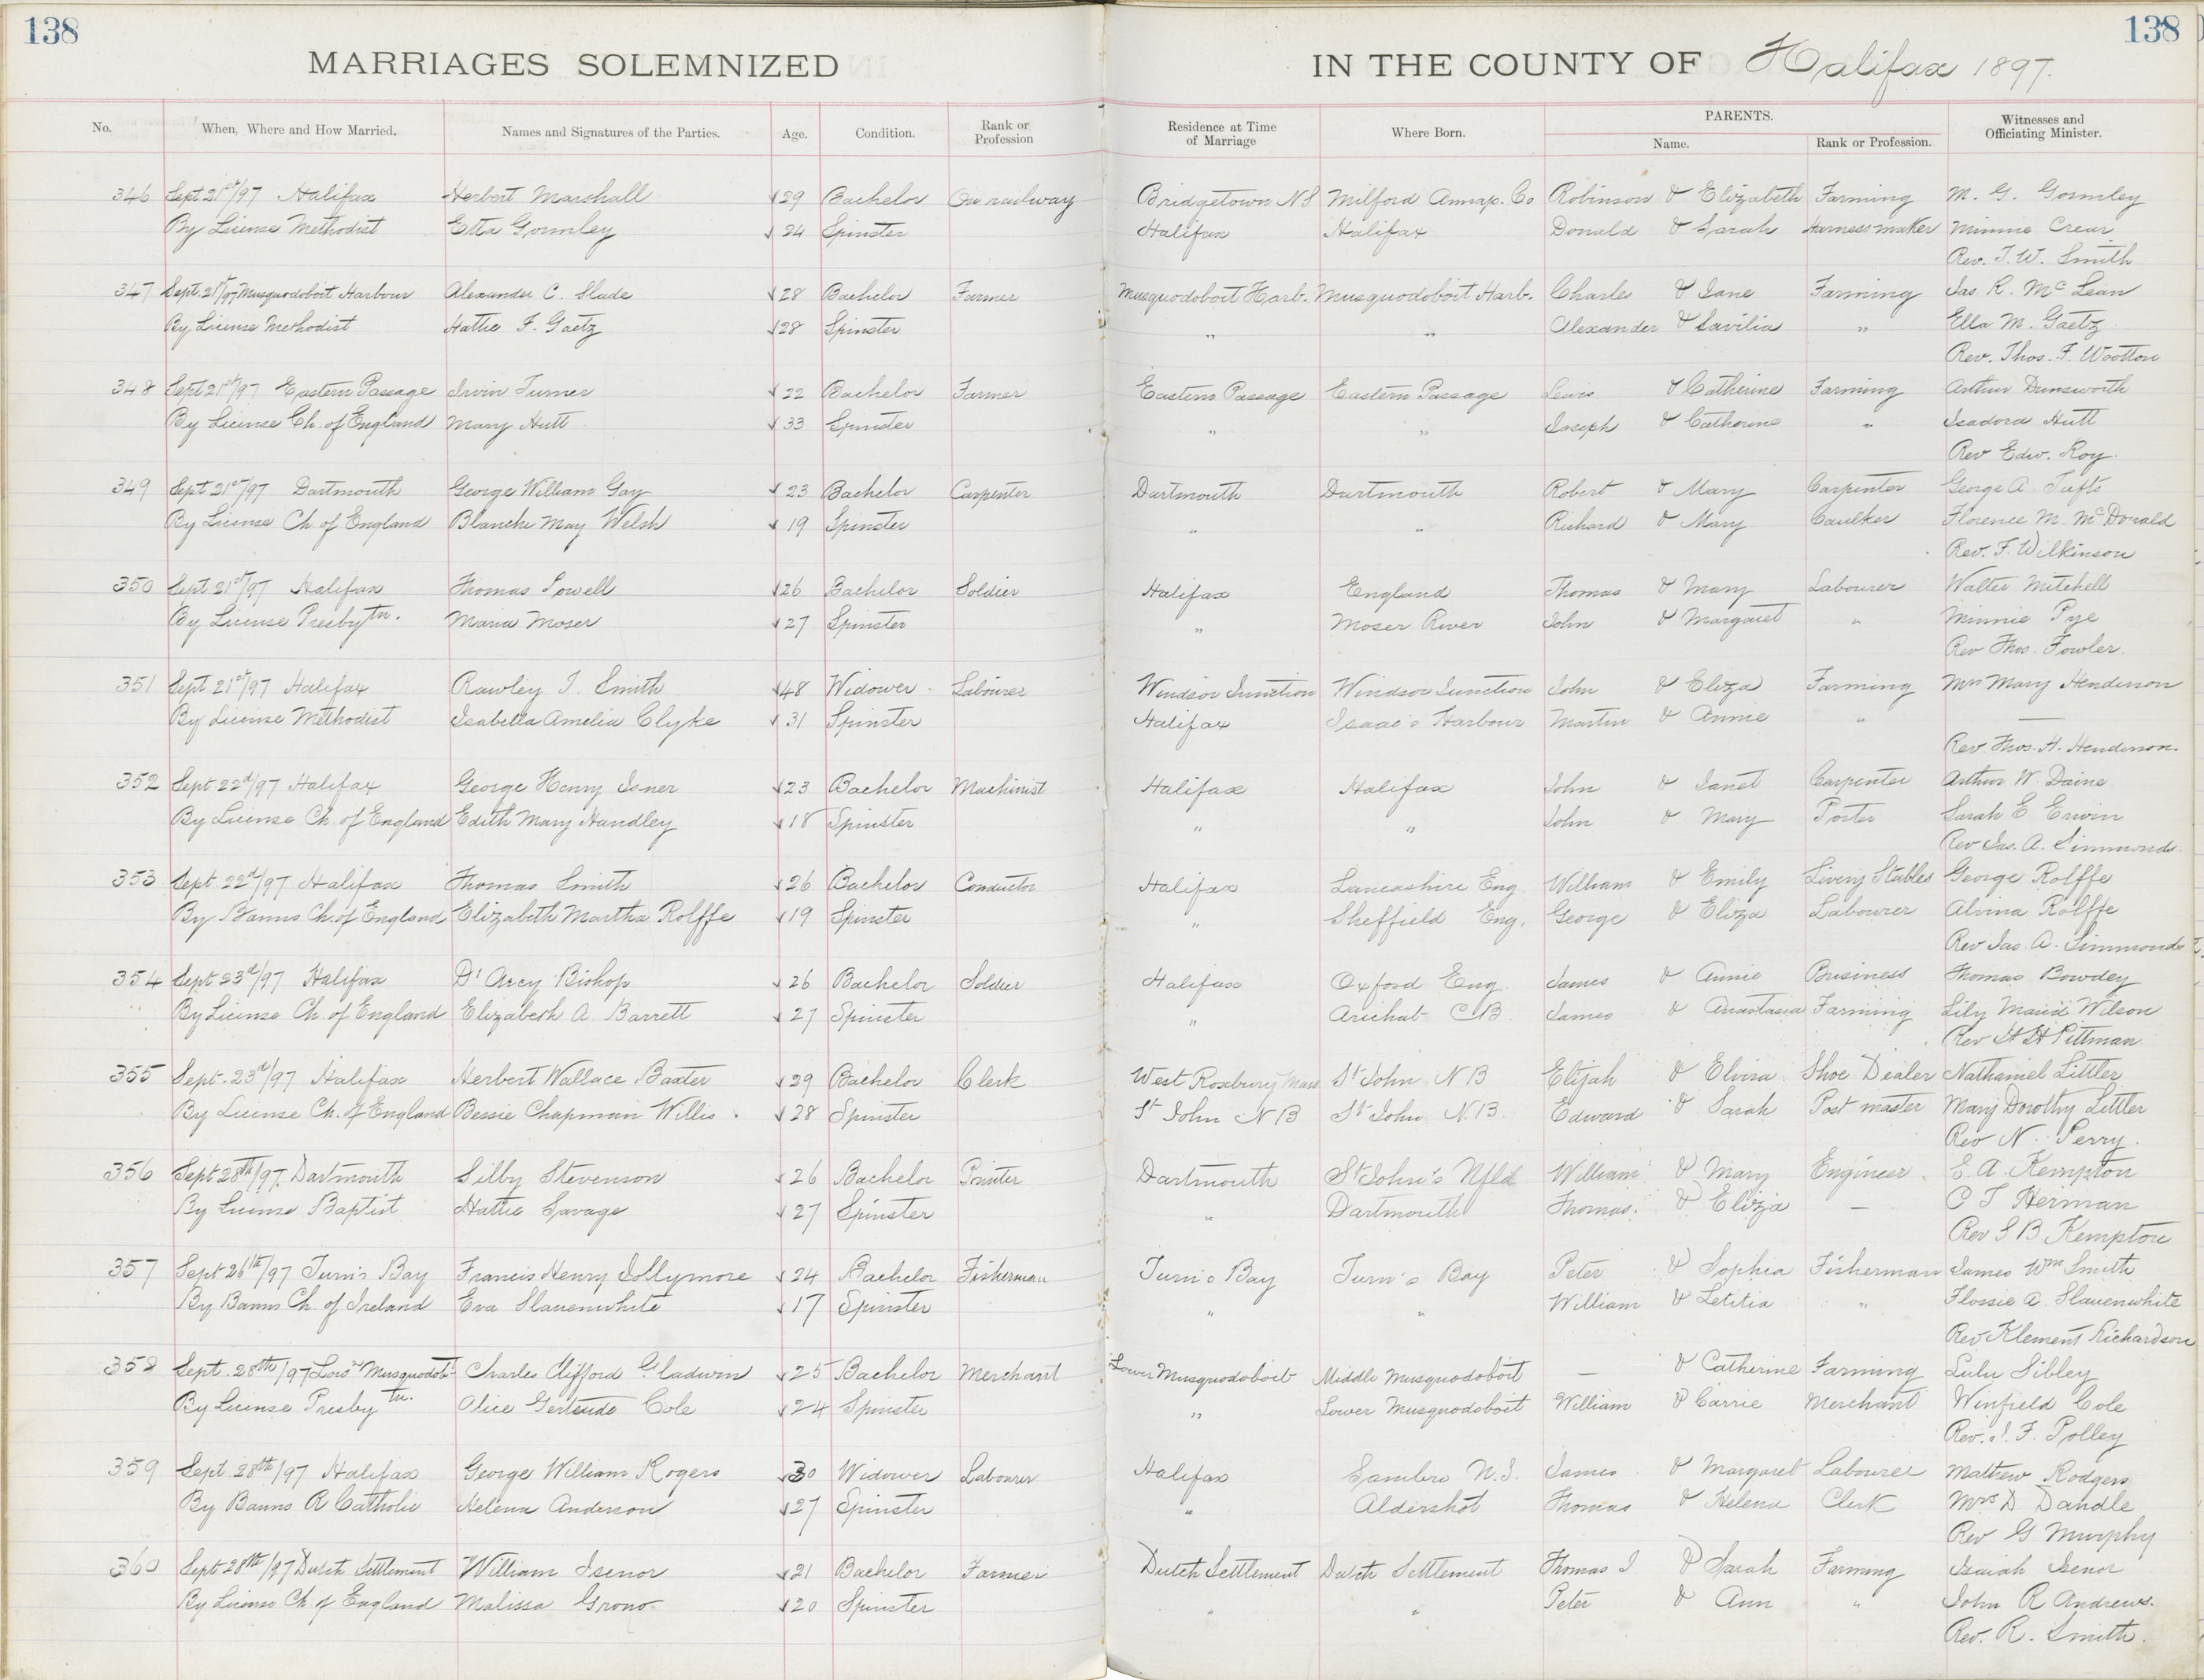 138 138
MARRIAGES SOLEMNIZED IN THE COUNTY OF Halifax 1897.
PARENTS.
No. When, Where and How Married. Names and Signatures of the Parties. Age. Condition. Rank or Profession Residence at Time of Marriage Where Born. Name. Rank or Profession. Witnesses and Officiating Minister.
346 Sept 21st/97 Halifax Herbert Marshall 29 Bachelor On railway Bridgetown NS Milford Annap. Co Robinson & Elizabeth Farming M. G. Gormley
By License Methodist Etta Gormley 24 Spinster Halifax Halifax Donald & Sarah Harness maker Minnie Crear
Rev. T. W. Smith
347 Sept. 21st/97 Musquodoboit Harbour Alexander C. Slade 28 Bachelor Farmer Musquodoboit Harb. Musquodoboit Harb. Charles & Jane Farming Jas. R. McLean
By License Methodist Hattie F. Gaetz 28 Spinster " " Alexander & Savilia " Ella M. Gaetz
Rev. Thos. F. Wootton
348 Sept 21st/97 Eastern Passage Irvin Turner 22 Bachelor Farmer Eastern Passage Eastern Passage Lewis & Catherine Farming Arthur Dunsworth
By License Ch. of England Mary Hutt 33 Spinster " " Joseph & Catherine " Isadora Hutt
Rev Edw. Roy.
349 Sept 21st/97 Dartmouth George William Gay 23 Bachelor Carpenter Dartmouth Dartmouth Robert & Mary Carpenter George A Tufts
By License Ch. of England Blanche May Welsh 19 Spinster " " Richard & Mary Caulker Florence M. McDonald
Rev. F. Wilkinson
350 Sept 21st/97 Halifax Thomas Powell 26 Bachelor Soldier Halifax England Thomas & Mary Labourer Walter Mitchell
By License Presbytn. Maria Moser 27 Spinster " Moser River John & Margaret " Minnie Pye
Rev Thos. Fowler.
351 Sept 21st/97 Halifax Rawley J. Smith 48 Widower Labourer Windsor Junction Windsor Junction John & Eliza Farming Mrs Mary Henderson
By License Methodist Isabella Amelia Clyke 31 Spinster Halifax Isaac's Harbour Martin & Annie " —
Rev Thos. H. Henderson.
352 Sept 22d/97 Halifax George Henry Isner 23 Bachelor Machinist Halifax Halifax John & Janet Carpenter Arthur W. Daine
By License Ch. of England Edith Mary Handley 18 Spinster " " John & Mary Porter Sarah E Erwin
Rev Jas. A. Simmonds.
353 Sept 22d/97 Halifax Thomas Smith 26 Bachelor Conductor Halifax Lancashire Eng. William & Emily Livery Stables George Rolffe
By Banns Ch. of England Elizabeth Martha Rolffe 19 Spinster " Sheffield Eng. George & Eliza Labourer Alvina Rolffe
Rev Jas. A. Simmonds
354 Sept 23d/97 Halifax D'Arcy Bishop 26 Bachelor Soldier Halifax Oxford Eng James & Annie Business Thomas Bowdey
By License Ch. of England Elizabeth A. Barrett 27 Spinster " Arichat CB. James & Anastasia Farming Lily Maria Wilson
Rev H H Pittman
355 Sept. 23d/97 Halifax Herbert Wallace Baxter 29 Bachelor Clerk West Roxbury Mass St John NB Elijah & Elvira Shoe Dealer Nathaniel Littler
By License Ch. of England Bessie Chapman Willis 28 Spinster St John NB St John N.B. Edward & Sarah Post master Mary Dorothy Littler
Rev N. Perry.
356 Sept 28th/97. Dartmouth Silby Stevenson 26 Bachelor Printer Dartmouth St John's Nfld William & Mary Engineer. E. A. Kempton
By License Baptist Hattie Savage 27 Spinster " Dartmouth Thomas & Eliza — C T Herman
Rev S B. Kempton
357 Sept 26th/97 Turn's Bay Francis Henry Jollymore 24 Bachelor Fisherman Turn's Bay Turn's Bay Peter & Sophia Fisherman James Wm Smith
By Banns Ch. of Ireland Eva Slauenwhite 17 Spinster " " William & Letitia " Flossie A. Slauenwhite
Rev Klement Richardson
358 Sept. 28th/97 Lowr Musquodobt Charles Clifford Gladwin 25 Bachelor Merchant Lower Musquodoboit Middle Musquodoboit — & Catherine Farming Lulu Sibley
By License Presbytn. Alice Gertrude Cole 24 Spinster " Lower Musquodoboit William & Carrie Merchant Winfield Cole
Rev. J. F. Polley
359 Sept 28th/97 Halifax George William Rogers 30 Widower Labourer Halifax Sambro N.S. James & Margaret Labourer Mathew Rodgers
By Banns R Catholic Helena Anderson 27 Spinster " Aldershot Thomas & Helena Clerk Mrs D Dandle
Rev G Murphy
360 Sept 28th/97 Dutch Settlement William Isenor 21 Bachelor Farmer Dutch Settlement Dutch Settlement Thomas J & Sarah Farming Isaiah Isenor
By License Ch. of England Malissa Grono 20 Spinster " " Peter & Ann " John R Andrews.
Rev. R. Smith.